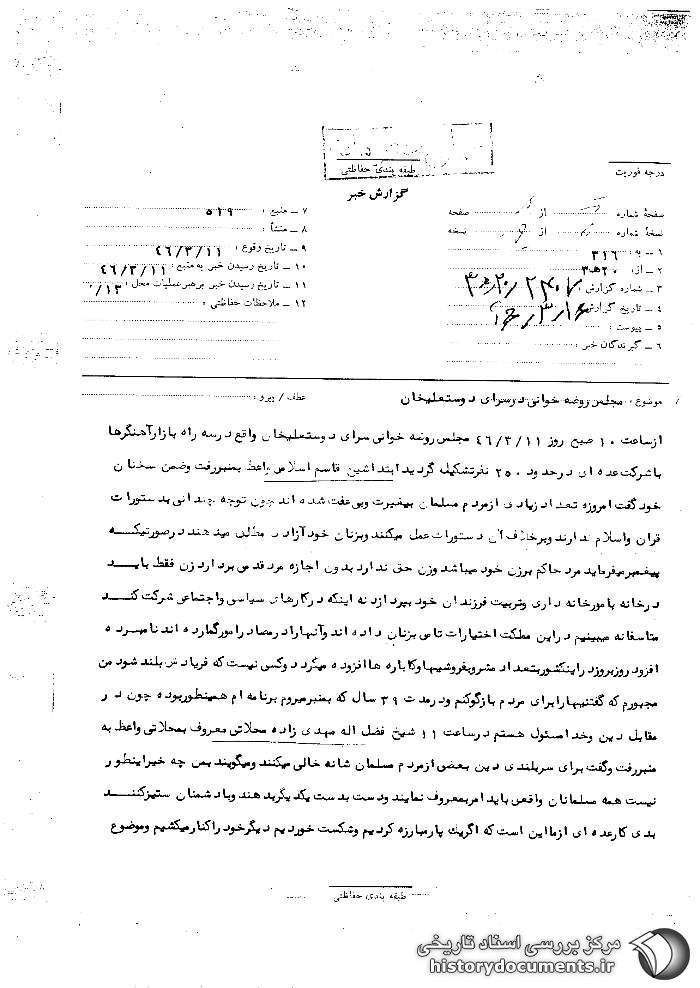 درجه فوریت
طبقه بندی حفاظتی
گزارش خبر
صفحهٔ شماره از صفحه
نسخهٔ شماره از نسخه
۱ ــ به : ۳۱۶
۲ ــ از: ۲۰ ه ۳
۳ ــ شماره گزارش :
۴ ــ تاریخ گزارش
۵ ــ پیوست :
۶ ــ گیرندگان خبر :
۷ ــ منبع : ۵۱۹
۸ ــ منشأ :
۹ ــ تاریخ وقوع : ۴۶/۳/۱۱
۱۰ ــ تاریخ رسیدن خبر به منبع : ۴۶/۳/۱۱
۱۱ ــ تاریخ رسیدن خبر برهبر عملیات محل : /۱۳
۱۲ ــ ملاحظات حفاظتی :
موضوع : مجلس روضه خوانی درسرای دوستعلیخان عطف / پیرو :
ازساعت ۱۰ صبح روز ۴۶/۳/۱۱ مجلس روضه خوانی سرای دوستعلیخان واقع درسه راه بازارآهنگرها
باشرکت عده ای درحدود ۲۵۰ نفرتشکیل گردید ابتدا شیخ قاسم اسلامی واعظ بمنبررفت وضمن سخنان
خود گفت امروزه تعداد زیادی ازمردم مسلمان بیغیرت وبی عفت شده اند چون توجه چندانی بدستورات
قران واسلام ندارند وبرخلاف آن دستورات عمل میکنند وبزنان خود آزادی مطلق میدهند درصورتیکه
پیغمبرمیفرماید مرد حاکم برزن خود میباشد وزن حق ندارد بدون اجازه مرد قدمی بردارد زن فقط باید
درخانه بامورخانه داری وتربیت فرزندان خود بپردازد نه اینکه درکارهای سیاسی واجتماعی شرکت کند
متاسفانه میبینیم دراین مملکت اختیارات تامی بزنان داده اند وآنهارادرمصادرامورگمارده اند نامبرده
افزود روزبروزدراینکشوربتعداد مشروبفروشیهاوکاباره ها افزوده میگردد وکسی نیست که فریادش بلند شود من
مجبورم که گفتنیهارابرای مردم بازگوکنم ودرمدت ۳۹ سال که بمنبرمیروم برنامه ام همینطوربوده چون در
مقابل دین وخدا مسئول هستم درساعت ۱۱ شیخ فضل اله مهدی زاده محلاتی معروف بمحلاتی واعظ به
منبررفت وگفت برای سربلندی دین بعضی ازمردم مسلمان شانه خالی میکنند ومیگویند بمن چه خیراینطور
نیست همه مسلمانان واقعی باید امربمعروف نمایند ودست بدست یکدیگربدهند وبادشمنان ستیزکنند
بدی کارعده ای ازمااین است که اگریک بارمبارزه کردیم وشکست خوردیم دیگرخود راکنارمیکشیم وموضوع
طبقه بندی حفاظتی
مرکز بررسی اسناد تاریخی
historydocuments.ir